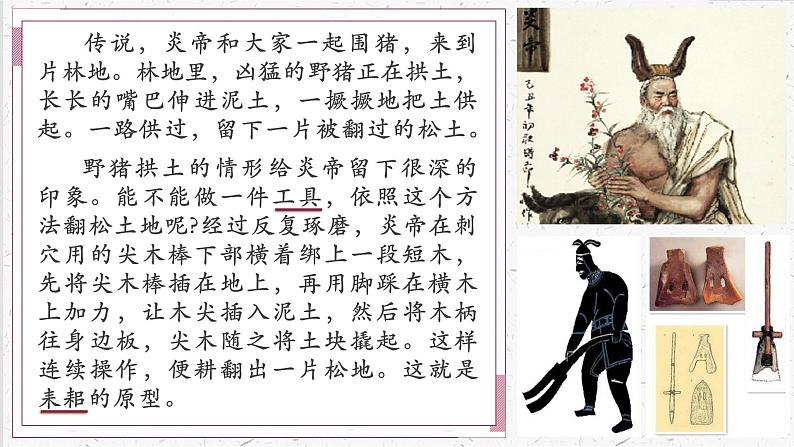 传说，炎帝和大家一起围猪，来到
片林地。林地里，凶猛的野猪正在拱土，
长长的嘴巴伸进泥土，一撅撅地把土供
起。一路供过，留下一片被翻过的松土。
野猪拱土的情形给炎帝留下很深的
印象。能不能做一件工具，依照这个方
法翻松土地呢?经过反复琢磨，炎帝在刺
穴用的尖木棒下部横着绑上一段短木，
先将尖木棒插在地上，再用脚踩在横木
上加力，让木尖插入泥土，然后将木柄
往身边板，尖木随之将土块撬起。这样
连续操作，便耕翻出一片松地。这就是
耒耜的原型。
炎帝